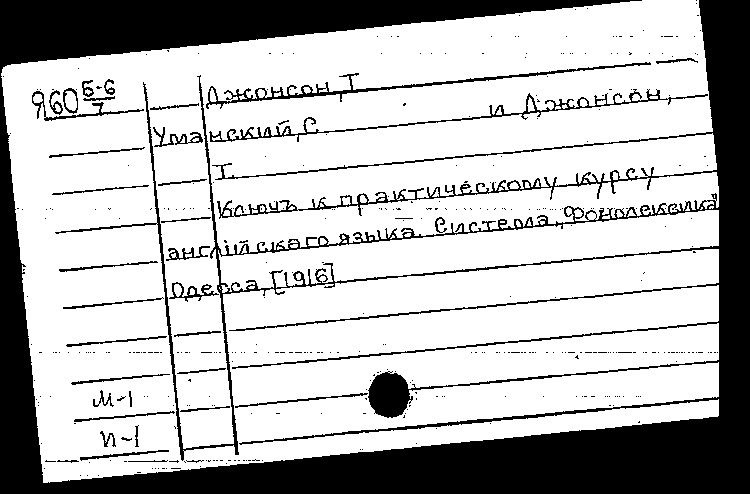 Я60 5-6/7
Джонсон, Т
Уманский, С и Джонсон,
Т.
Ключъ к практическому курсу
английскаго языка. Система „Фонолексика"
Одесса, [1916]
М-1
П-1